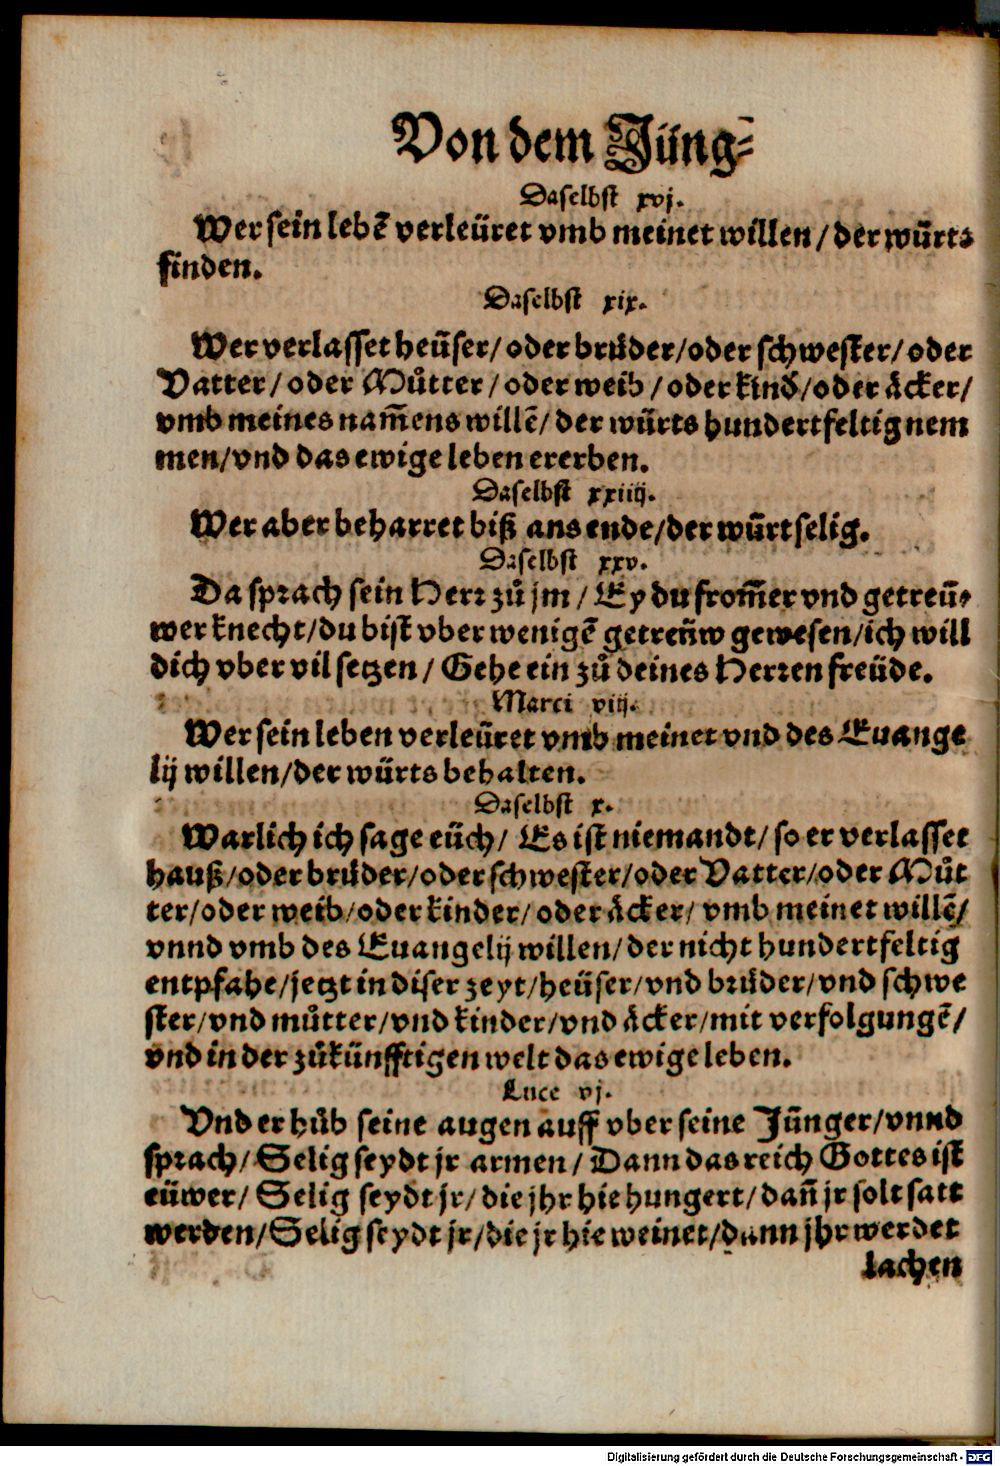 Von dem Jüng⸗
Daselbst xvj.
Wer sein lebē verleüret vmb meinet willen / der würts
finden.
Daselbst xix.
Wer verlasset heüser / oder brüder / oder schwester / oder
Vatter / oder Můtter / oder weib / oder kind / oder äcker /
vmb meines nam̃ens willē / der würts hundertfeltig nem
men / vnd das ewige leben ererben.
Daselbst xxiiij.
Wer aber beharret biß ans ende / der würt selig.
Daselbst xxv.
Da sprach sein Herr zů jm / Ey du from̃er vnd getreü⸗
wer knecht / du bist vber wenigē getreüw gewesen / ich will
dich vber vil setzen / Gehe ein zů deines Herren freüde.
Marci viij.
Wer sein leben verleüret vmb meinet vnd des Euange
lij willen / der würts behalten.
Daselbst x.
Warlich ich sage eüch / Es ist niemandt / so er verlasset
hauß / oder brüder / oder schwester / oder Vatter / oder Můt
ter / oder weib / oder kinder / oder äcker / vmb meinet willē /
vnnd vmb des Euangelij willen / der nicht hundertfeltig
entpfahe / jetzt in diser zeyt / heüser / vnd brüder / vnd schwe
ster / vnd můtter / vnd kinder / vnd äcker / mit verfolgungē /
vnd in der zůkünfftigen welt das ewige leben.
Luce vj.
Vnd er hůb seine augen auff vber seine Jünger / vnnd
sprach / Selig seydt jr armen / Dann das reich Gottes ist
eüwer / Selig seydt jr / die jhr hie hungert / dañ jr solt satt
werden / Selig seydt jr / die jr hie weinet / dann jhr werdet
lachen
Digitalisierung gefördert durch die Deutsche Forschungsgemeinschaft - DFG